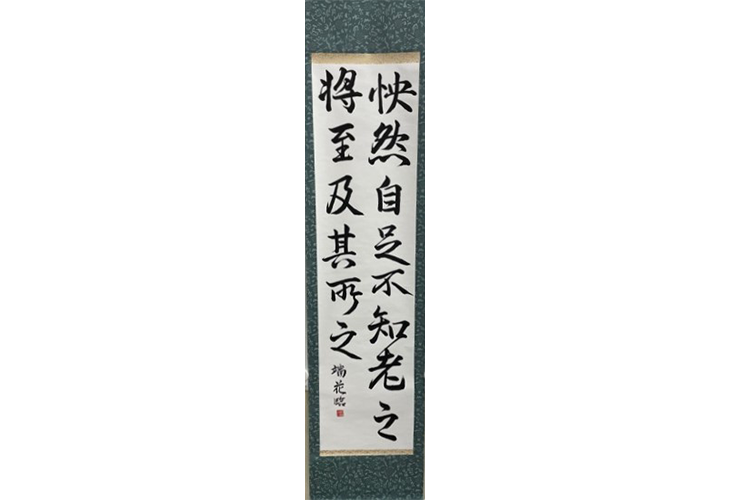 怏然自足不知老之
将至及其所之
瑞花臨